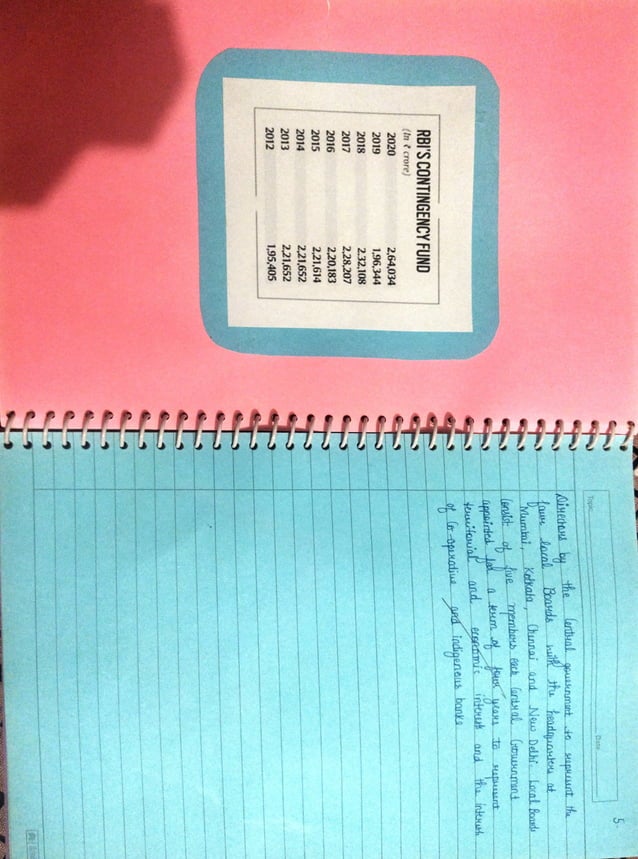 RBI'S CONTINGENCY FUND
(In ₹ crore)
2020 2,64,034
2019 1,96,344
2018 2,32,108
2017 2,28,207
2016 2,20,183
2015 2,21,614
2014 2,21,652
2013 2,21,652
2012 1,95,405
5
Topic
Date
Directions by the Central government to represent the
four local Boards with the headquarters at
Mumbai, Kolkata, Chennai and New Delhi. Local Boards
consist of five members each Central Government
appointed for a term of four years to represent
territorial and economic interests and the interests
of Co-operative and indigenous banks